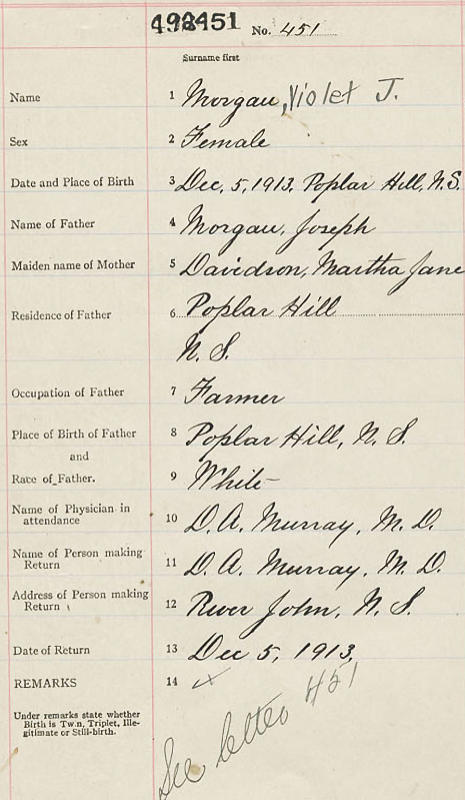 498451 No. 451
Surname first
Name 1 Morgan, Violet J.
Sex 2 Female
Date and Place of Birth 3 Dec. 5, 1913. Poplar Hill, N.S.
Name of Father 4 Morgan, Joseph
Maiden name of Mother 5 Davidson, Martha Jane
Residence of Father 6 Poplar Hill
N. S.
Occupation of Father 7 Farmer
Place of Birth of Father 8 Poplar Hill, N. S.
and
Race of Father. 9 White
Name of Physician in
attendance 10 D. A. Murray, M. D.
Name of Person making
Return 11 D. A. Murray, M. D.
Address of Person making
Return 12 River John, N. S.
Date of Return 13 Dec 5, 1913,
REMARKS 14
Under remarks state whether
Birth is Twin, Triplet, Ille-
gitimate or Still-birth.
See letter 451